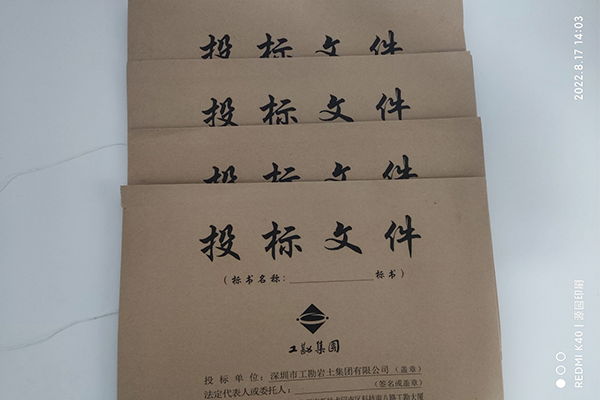 投标文件
投标文件
投标文件
投标文件
(标书名称：____________标书)
工勘集团
投 标 单 位：深圳市工勘岩土集团有限公司 (盖章)
法定代表人或委托人：____________(签名或盖章)
2022.8.17 14:03
REDMI K40 | 源园印刷